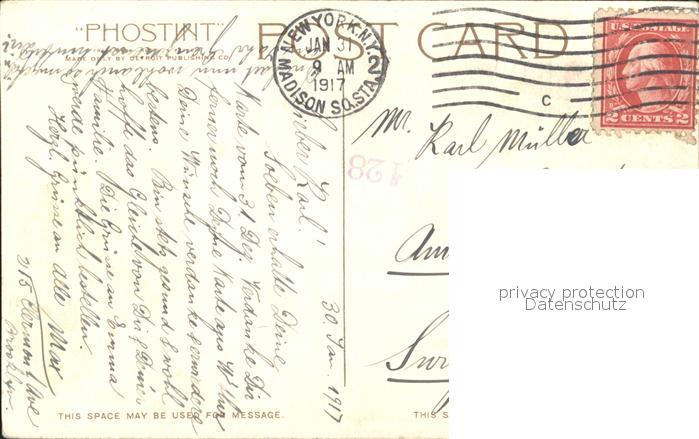 "PHOSTINT"
MADE ONLY BY DETROIT PUBLISHING CO.
POST CARD
NEW YORK, N.Y.
JAN 31
9 AM
1917
MADISON SQ. STA.
2
C
U.S. POSTAGE
2 CENTS 2
128
Mr. Karl Müller
Am
Sur
privacy protection
Datenschutz
30. Jan. 1917
Lieber Karl!
Soeben erhalte Deine
Karte vom 31 Dez. Verdanke Dir
ferner noch Deine Karte aus
Deine Wünsche verdanke
bestens. Bin stets gesund & wohl
hoffe das Gleiche von Dir & Deiner
Familie. Die Grüsse an Emma
werde pünktlich bestellen.
Herzl. Grüsse an Alle Max
215 Clermont Ave
Brooklyn.
THIS SPACE MAY BE USED FOR MESSAGE.
THIS S